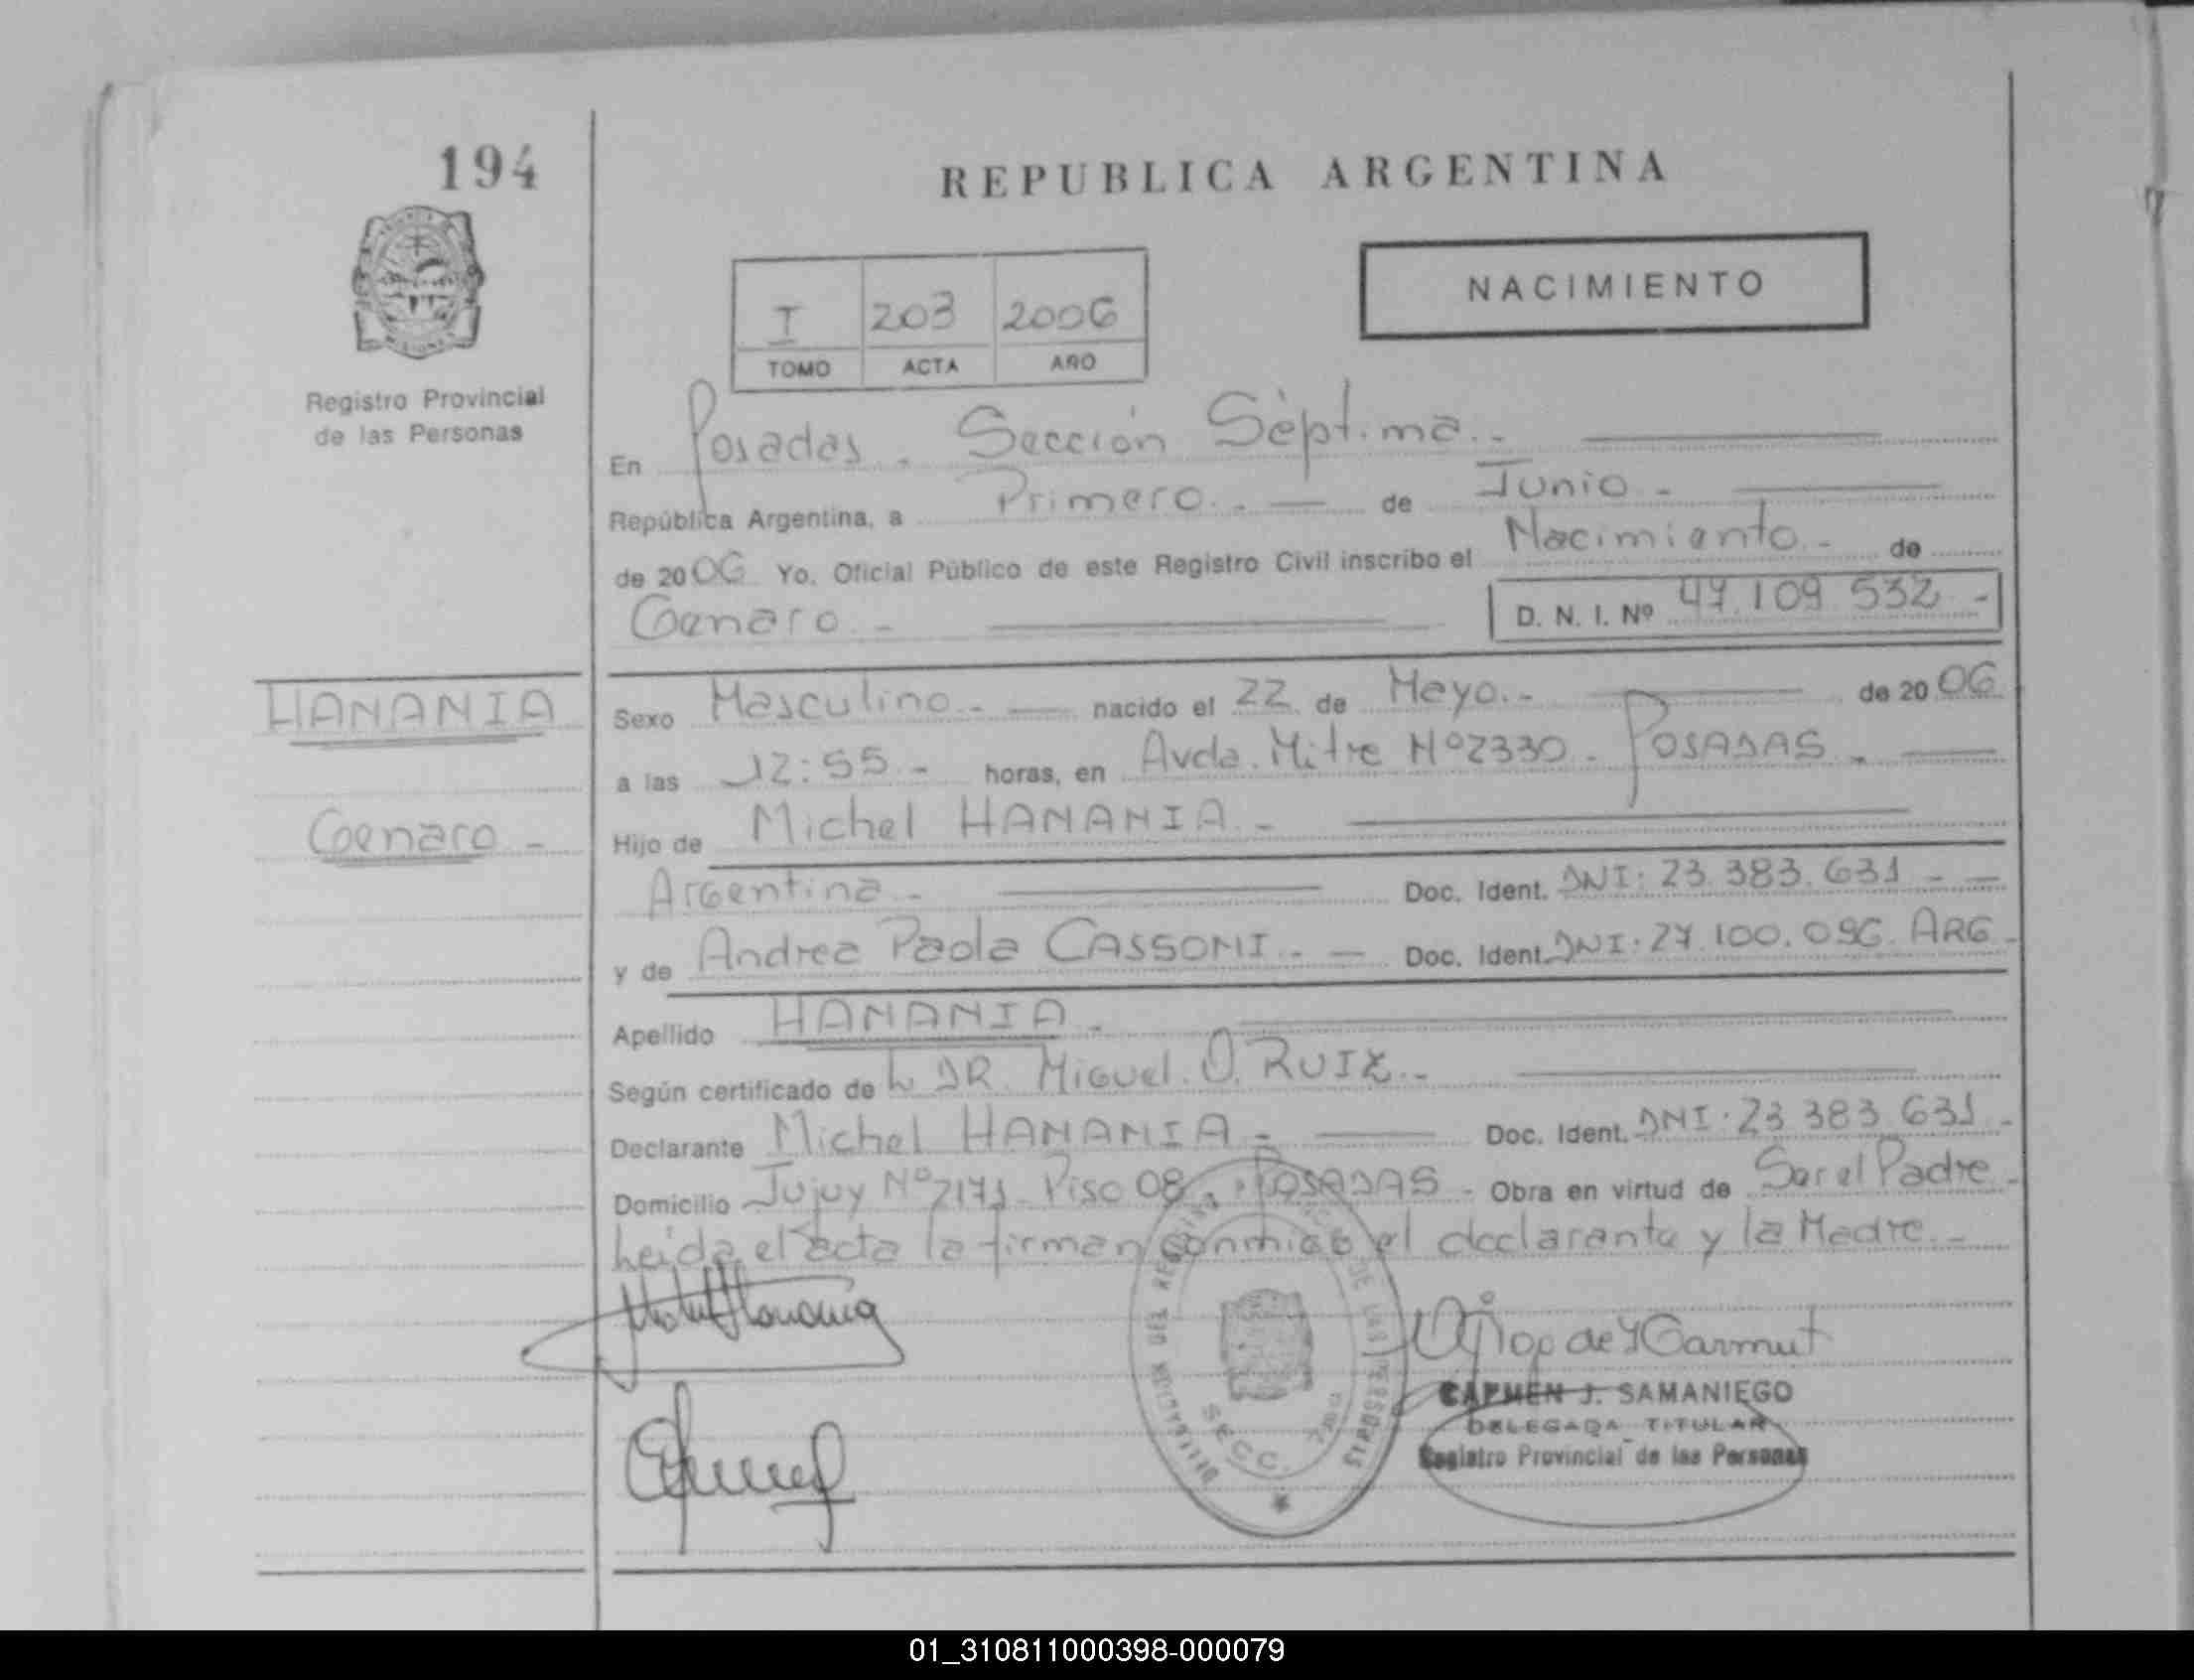 194
REPUBLICA ARGENTINA
NACIMIENTO
I 203 2006
TOMO ACTA AÑO
Registro Provincial
de las Personas
En Posadas. Sección Séptima.-
República Argentina, a Primero.- de Junio-
de 2006 Yo, Oficial Público de este Registro Civil inscribo el Nacimiento.- de
Genaro.- D. N. I. Nº 47.109.532-
HANANIA
Genaro-
Sexo Masculino.- nacido el 22 de Mayo.- de 2006
a las 12:55.- horas, en Avda. Mitre Nº2330- POSADAS.-
Hijo de Michel HANANIA.-
Argentina.- Doc. Ident. DNI: 23.383.631--
y de Andrea Paola CASSONI.- Doc. Ident. DNI: 27.100.096. ARG-
Apellido HANANIA.-
Según certificado de DR. Miguel. O. RUIZ.-
Declarante Michel HANANIA- Doc. Ident. DNI: 23 383 631-
Domicilio Jujuy Nº2171- Piso 08, POSADAS- Obra en virtud de Ser el Padre-
Leida el acta la firman conmigo el declarante y la Madre.-
CARMEN J. SAMANIEGO
DELEGADA TITULAR
Registro Provincial de las Personas
DEL REGISTRO DE LAS PERSONAS
SECC.
01_310811000398-000079